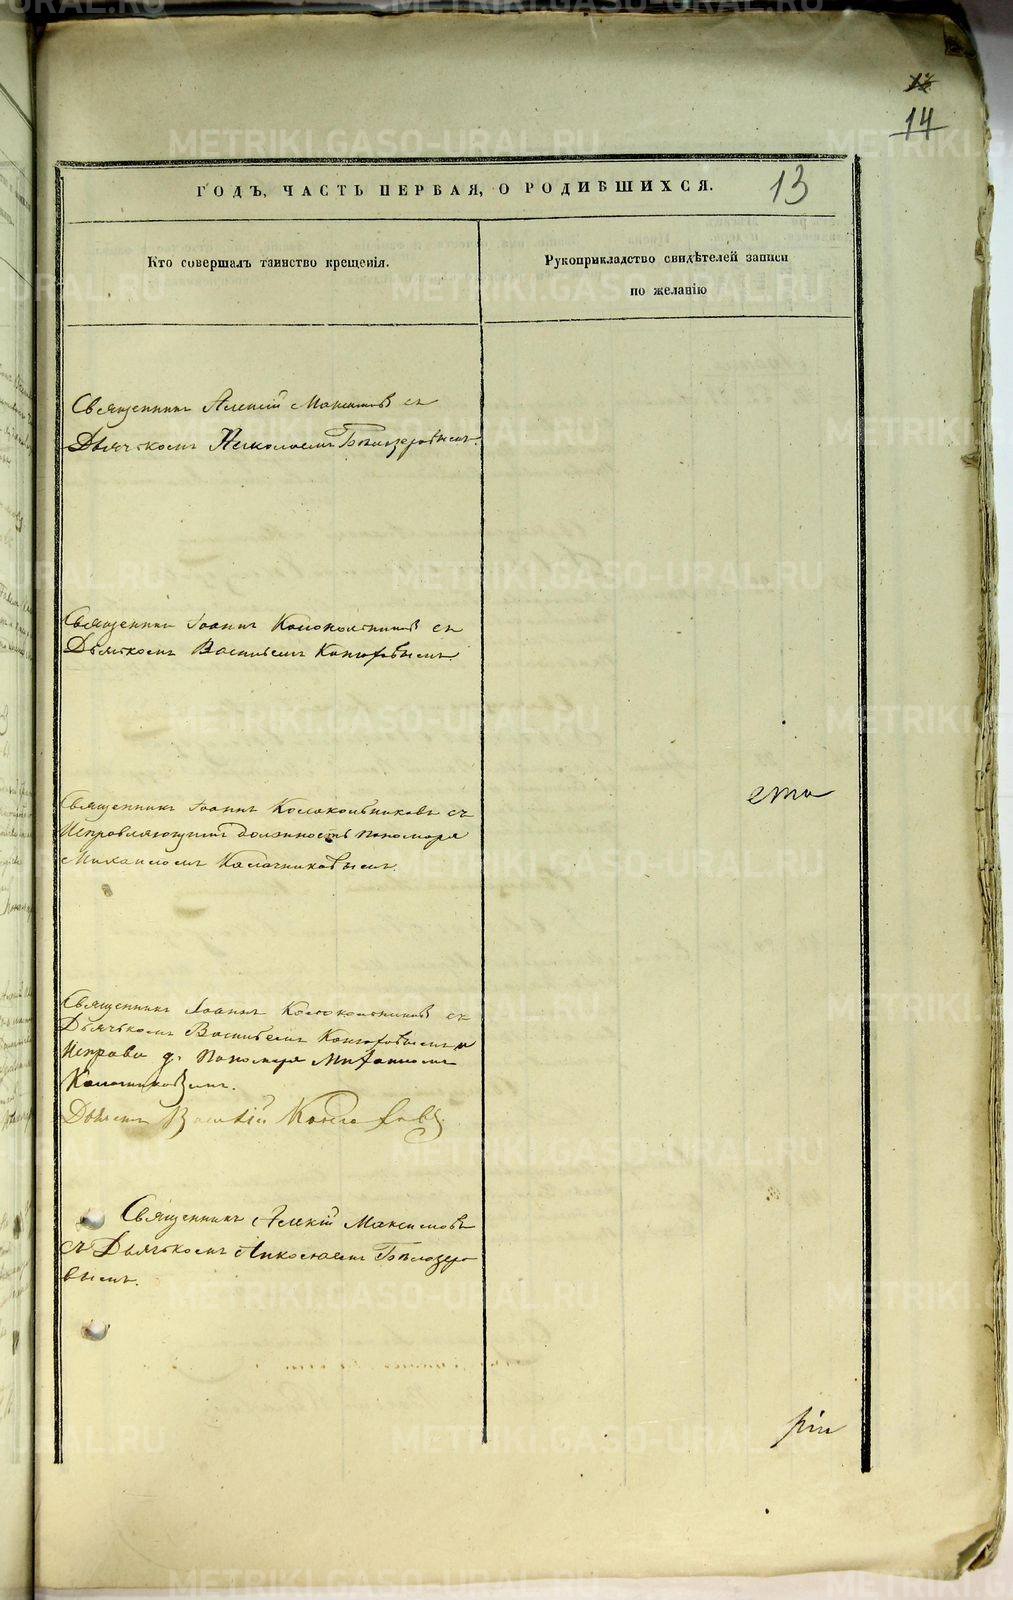 14
ГОДЪ, ЧАСТЬ ПЕРВАЯ, О РОДИВШИХСЯ.
13
Кто совершалъ таинство крещенія.
Рукоприкладство свидѣтелей записи
по желанію
Священникъ Алексій Максимовъ съ
Дьячкомъ Николаемъ Бѣлозеровымъ.
Священникъ Іоаннъ Колокольниковъ съ
Дьячкомъ Васильемъ Конюховымъ.
Священникъ Іоаннъ Колокольниковъ съ
Исправляющимъ должность пономаря
Михаиломъ Калачниковымъ.
Священникъ Іоаннъ Колокольниковъ съ
Дьячькомъ Васильемъ Конюховымъ и
Исправ д. Пономаря Михаиломъ
Калачниковымъ.
Дьячекъ Василій Конюховъ.
Священникъ Алексій Максимовъ
съ Дьячькомъ Николаемъ Бѣлозеро
вымъ.
METRIKI.GASO-URAL.RU